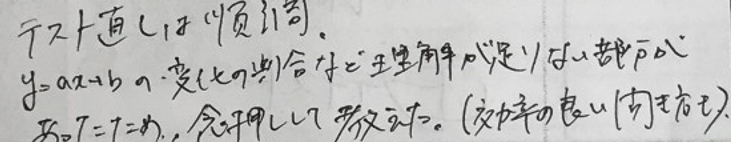 テスト直しは順調。
y=ax+bの変化の割合など理解が足りない部分が
あったため、念押しして教えた。(効率の良い解き方も)